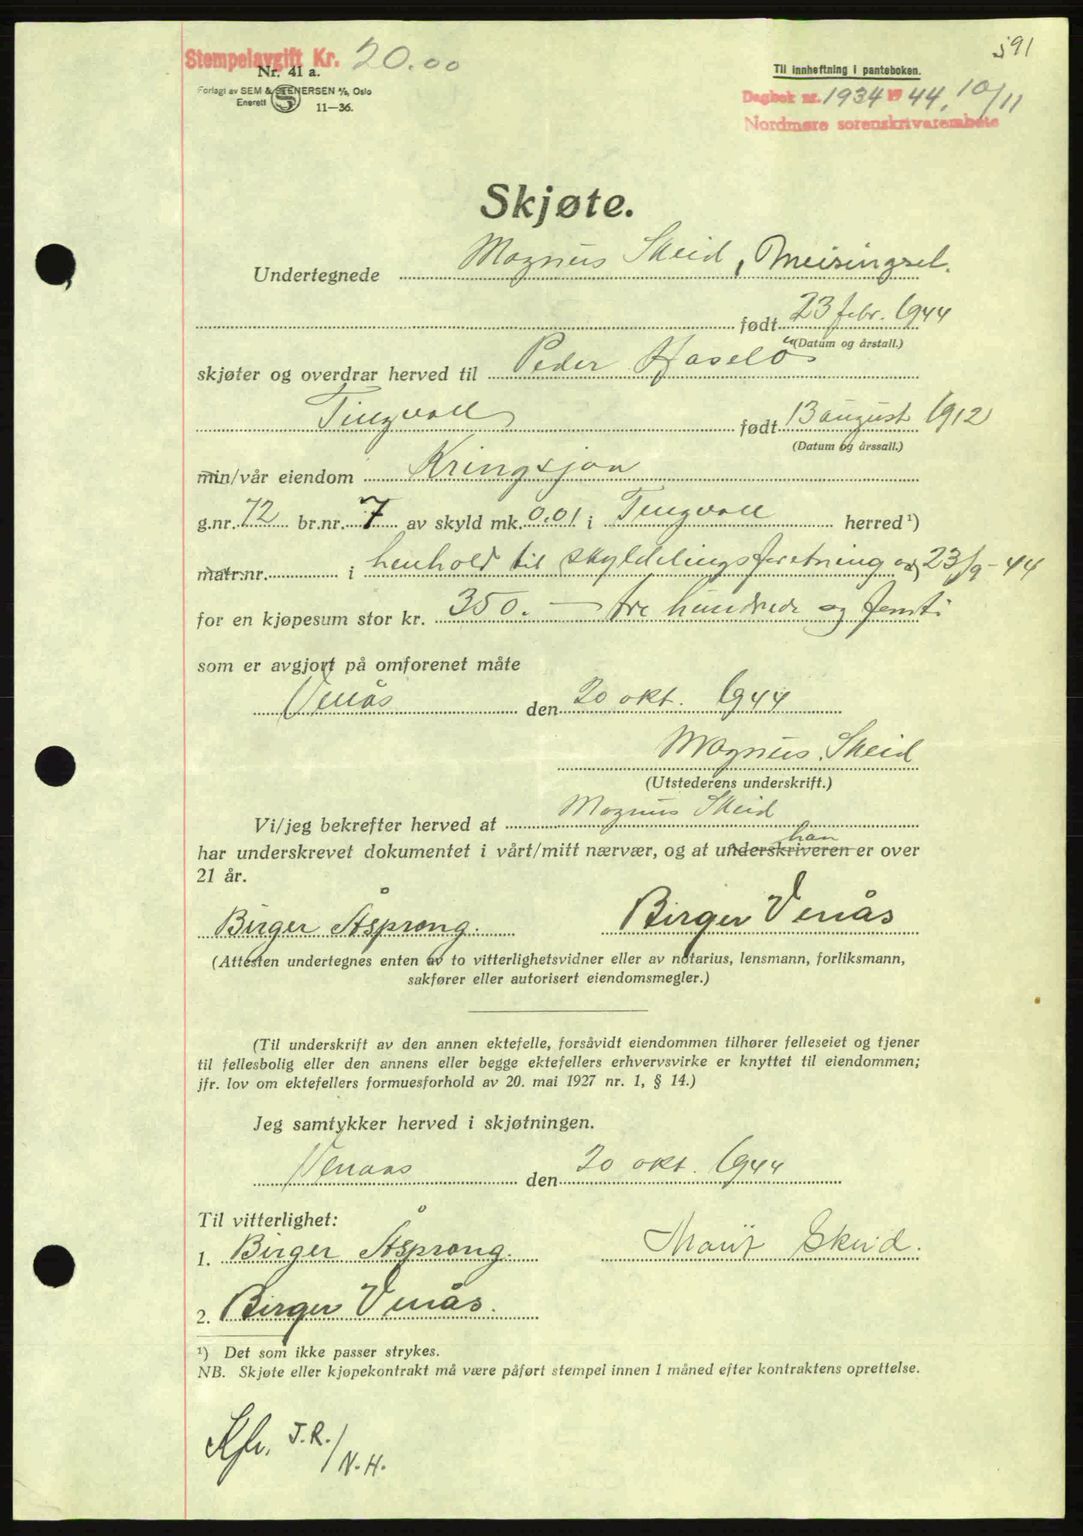 591
Stempelavgift Kr. 20.00
Nr. 41 a.
Forlagt av SEM & STENERSEN A/S, Oslo
Enerett S 11—36.
Til innheftning i panteboken.
Dagbok nr. 1934 1944, 10/11
Nordmøre sorenskriverembete
Skjøte.
Undertegnede Magnus Skeid, Meisingset.
født 23 febr. 1944
(Datum og årstall.)
skjøter og overdrar herved til Peder Haselø
Tingvoll født 13 august 1912
(Datum og årssall.)
min/vår eiendom Kringsjaa
g.nr. 72 br.nr. 7 av skyld mk. 0.01 i Tingvoll herred ¹)
matr.nr. i henhold til skylddelingsforretning av 23/9-44
for en kjøpesum stor kr. 350. — tre hundrede og femti
som er avgjort på omforenet måte
Venås den 20 okt. 1944
Magnus Skeid
(Utstederens underskrift.)
Vi/jeg bekrefter herved at Magnus Skeid
han
har underskrevet dokumentet i vårt/mitt nærvær, og at underskriveren er over
21 år.
Birger Åsprong. Birger Venås
(Attesten undertegnes enten av to vitterlighetsvidner eller av notarius, lensmann, forliksmann,
sakfører eller autorisert eiendomsmegler.)
(Til underskrift av den annen ektefelle, forsåvidt eiendommen tilhører felleseiet og tjener
til fellesbolig eller den annens eller begge ektefellers erhvervsvirke er knyttet til eiendommen;
jfr. lov om ektefellers formuesforhold av 20. mai 1927 nr. 1, § 14.)
Jeg samtykker herved i skjøtningen.
Venaas den 20 okt. 1944
Til vitterlighet:
1. Birger Åsprong. Marit Skeid.
2. Birger Venås.
¹) Det som ikke passer strykes.
NB. Skjøte eller kjøpekontrakt må være påført stempel innen 1 måned efter kontraktens oprettelse.
Kfr. J.R./N.H.